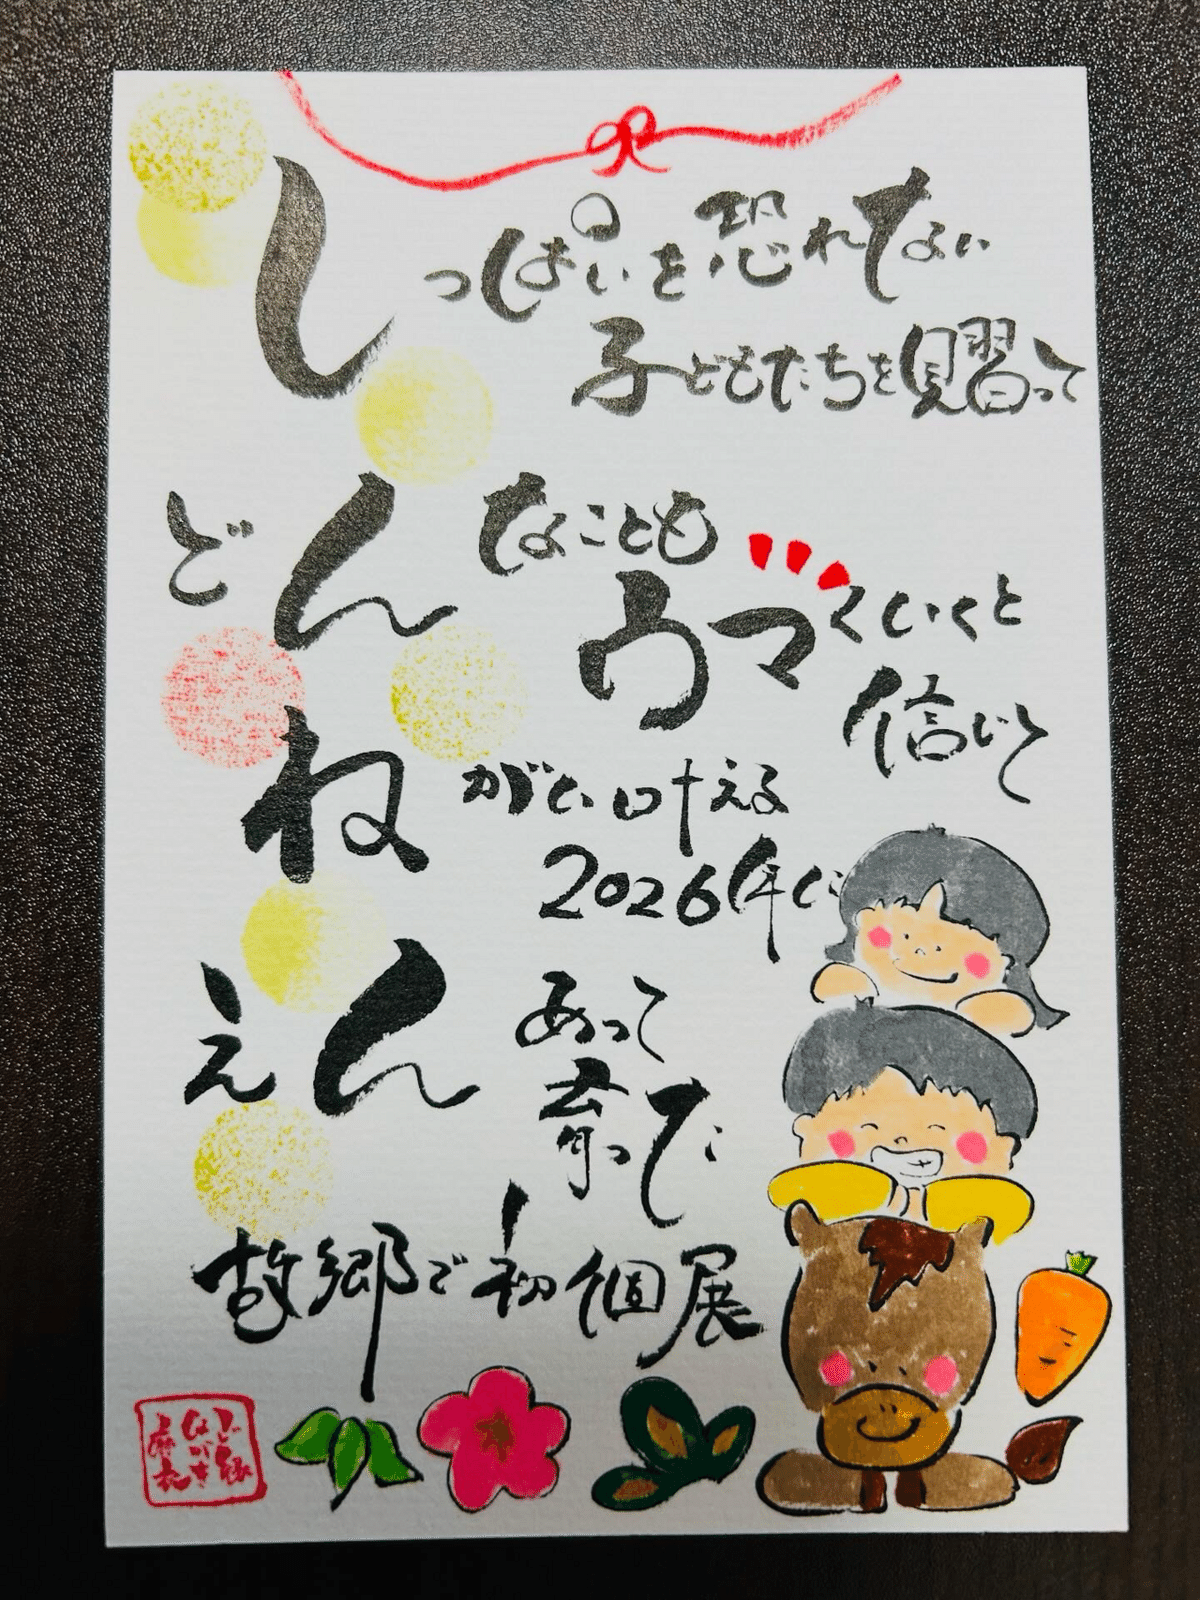 しっぱいを恐れない
子どもたちを見習って
どんなことも
ウマくいくと
信じて
ねがい叶える
2026年に
えんあって
育った
故郷で初個展